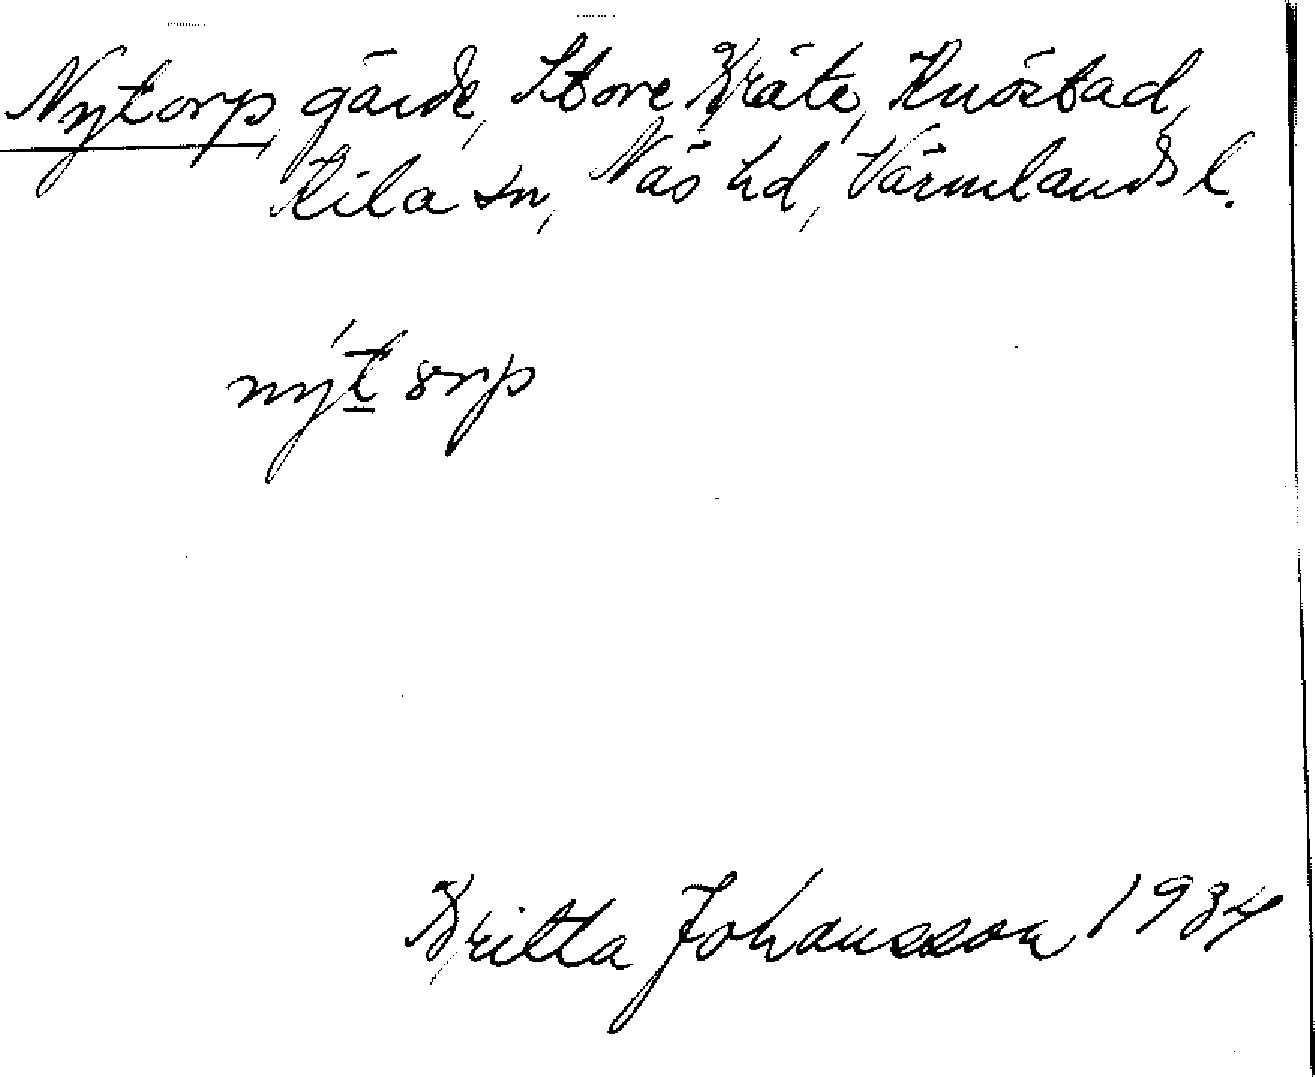 Nytorp, gärde, Store Bräte, Knöstad,
Kila sn, Näs hd, Värmlands l.
nýt orp
Britta Johansson 1934